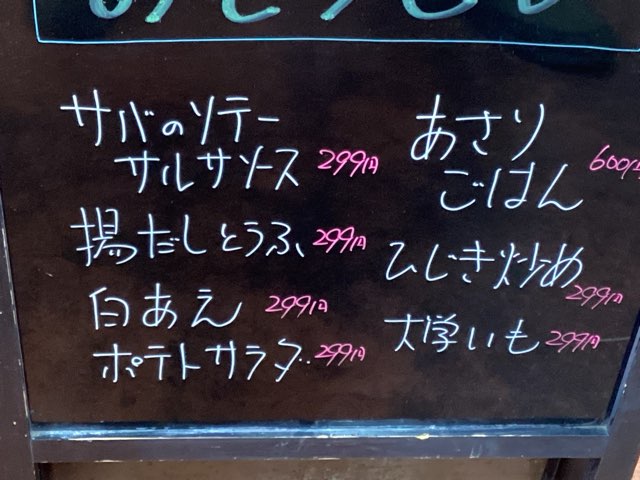 サバのソテー
サルサソース 299円
揚だしとうふ 299円
白あえ 299円
ポテトサラダ 299円
あさり
ごはん 600円
ひじき炒め
299円
大学いも 299円